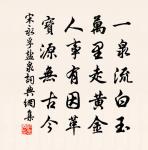 一泉流白玉
萬里走黃金
人事有因革
寶源無古今
宋永孚鹽泉詞典網集